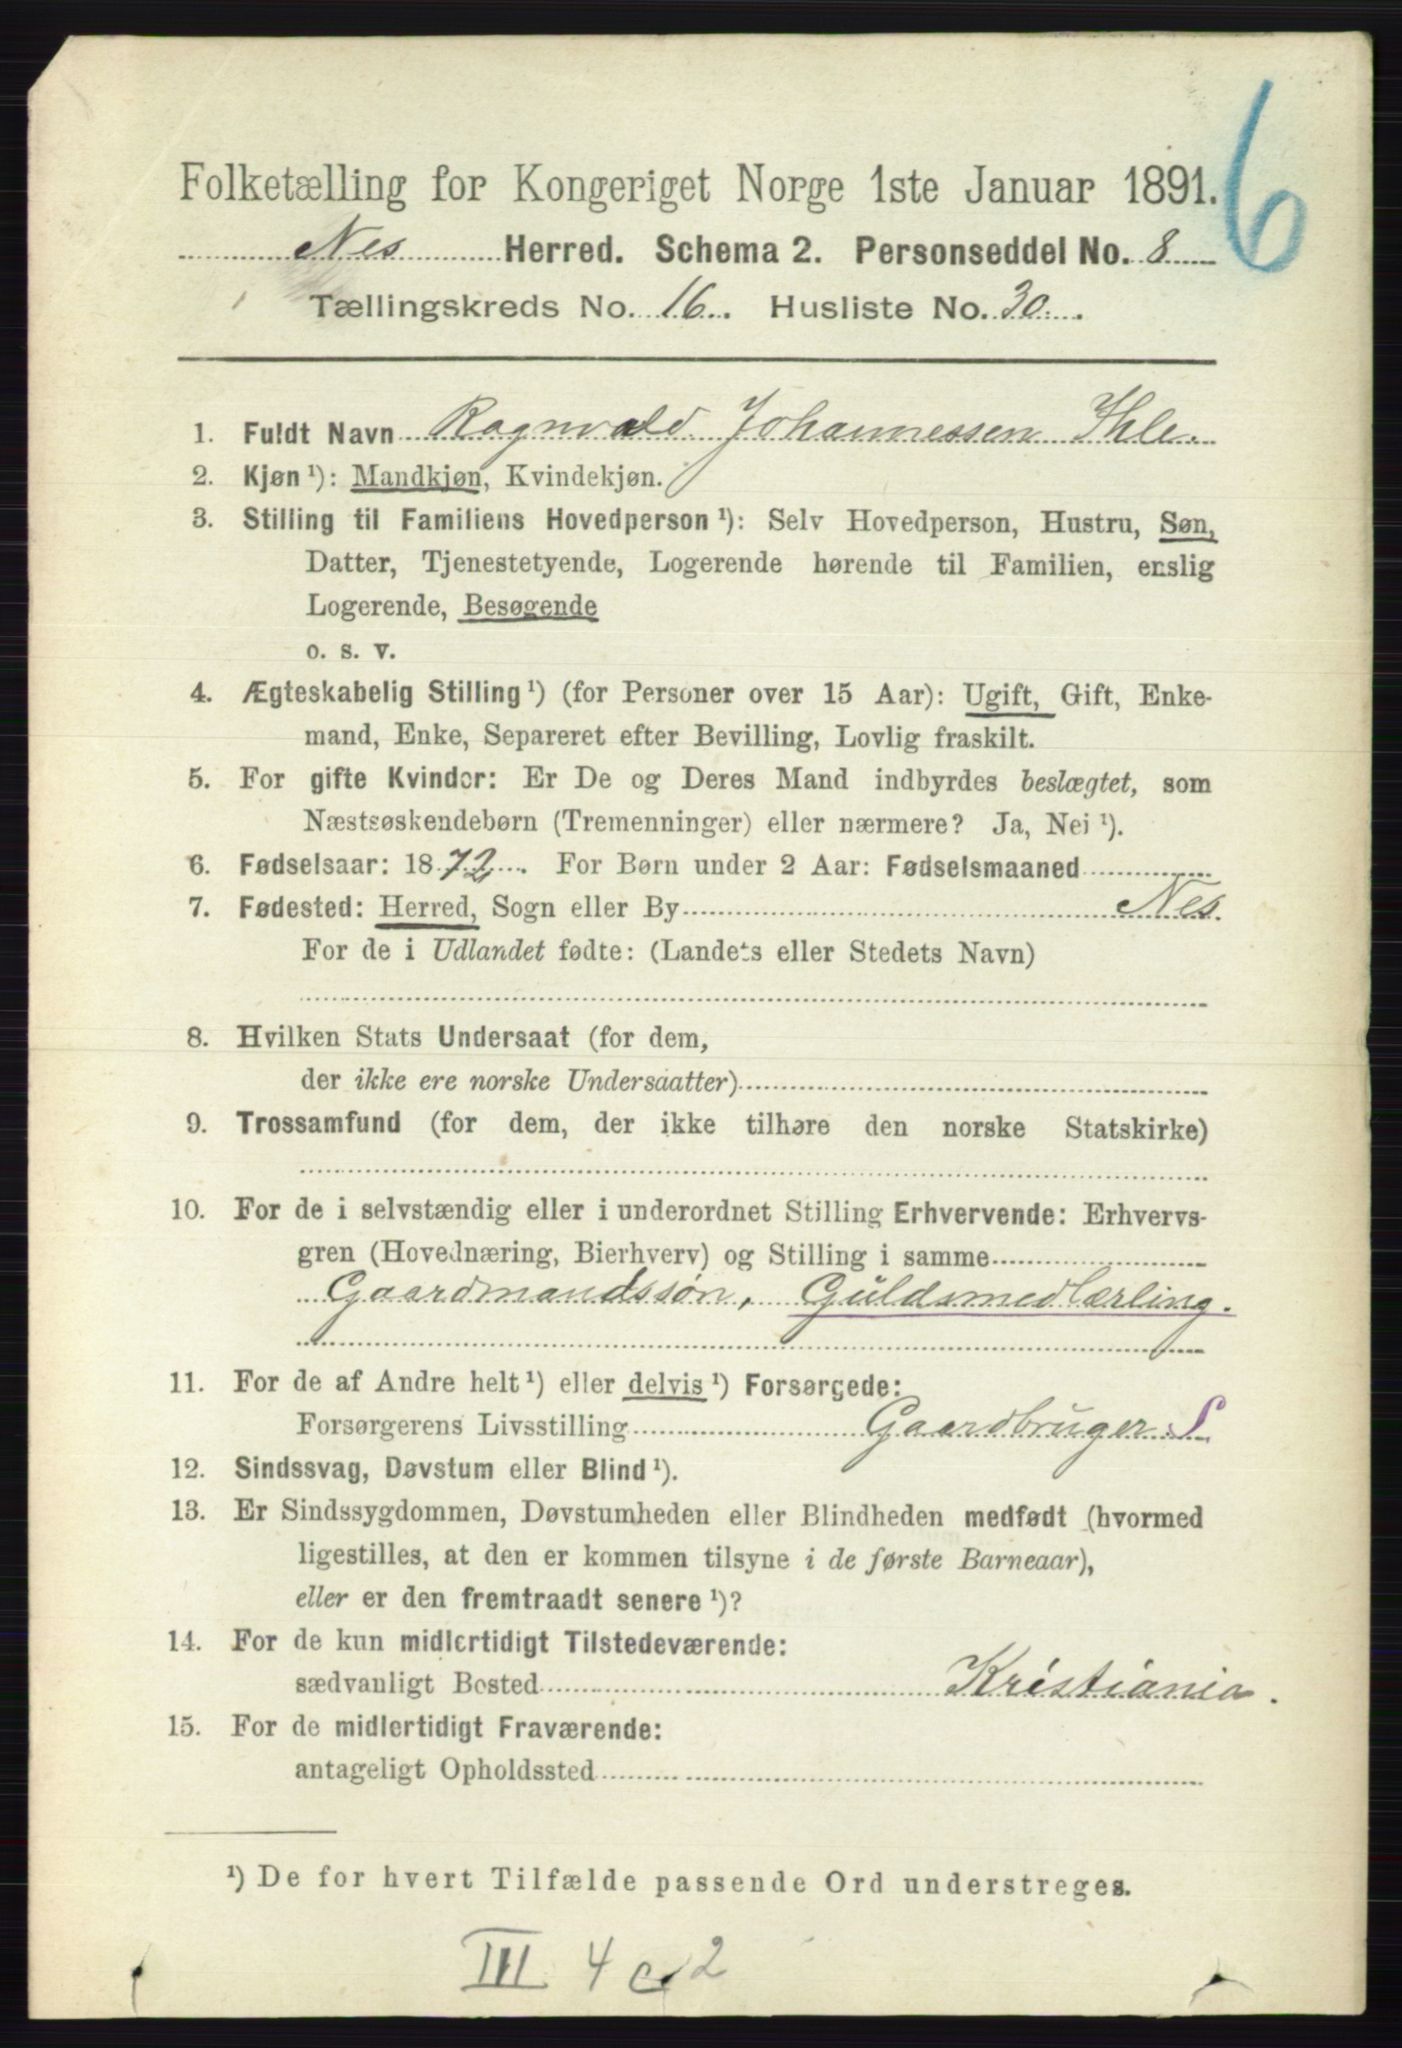 6
Folketælling for Kongeriget Norge 1ste Januar 1891.
Nes Herred. Schema 2. Personseddel No. 8
Tællingskreds No. 16. Husliste No. 30.
1. Fuldt Navn Ragnvald Johannessen Ihle.
2. Kjøn ¹): Mandkjøn, Kvindekjøn.
3. Stilling til Familiens Hovedperson ¹): Selv Hovedperson, Hustru, Søn,
Datter, Tjenestetyende, Logerende hørende til Familien, enslig
Logerende, Besøgende
o. s. v.
4. Ægteskabelig Stilling ¹) (for Personer over 15 Aar): Ugift, Gift, Enke-
mand, Enke, Separeret efter Bevilling, Lovlig fraskilt.
5. For gifte Kvinder: Er De og Deres Mand indbyrdes beslægtet, som
Næstsøskendebørn (Tremenninger) eller nærmere? Ja, Nei ¹).
6. Fødselsaar: 1872. For Børn under 2 Aar: Fødselsmaaned
7. Fødested: Herred, Sogn eller By Nes.
For de i Udlandet fødte: (Landets eller Stedets Navn)
8. Hvilken Stats Undersaat (for dem,
der ikke ere norske Undersaatter)
9. Trossamfund (for dem, der ikke tilhøre den norske Statskirke)
10. For de i selvstændig eller i underordnet Stilling Erhvervende: Erhvervs-
gren (Hovednæring, Bierhverv) og Stilling i samme
Gaardmandssøn, Guldsmedlærling.
11. For de af Andre helt ¹) eller delvis ¹) Forsørgede:
Forsørgerens Livsstilling Gaardbruger S
12. Sindssvag, Døvstum eller Blind ¹).
13. Er Sindssygdommen, Døvstumheden eller Blindheden medfødt (hvormed
ligestilles, at den er kommen tilsyne i de første Barneaar),
eller er den fremtraadt senere ¹)?
14. For de kun midlertidigt Tilstedeværende:
sædvanligt Bosted Kristiania.
15. For de midlertidigt Fraværende:
antageligt Opholdssted
¹) De for hvert Tilfælde passende Ord understreges.
III 4 c. 2